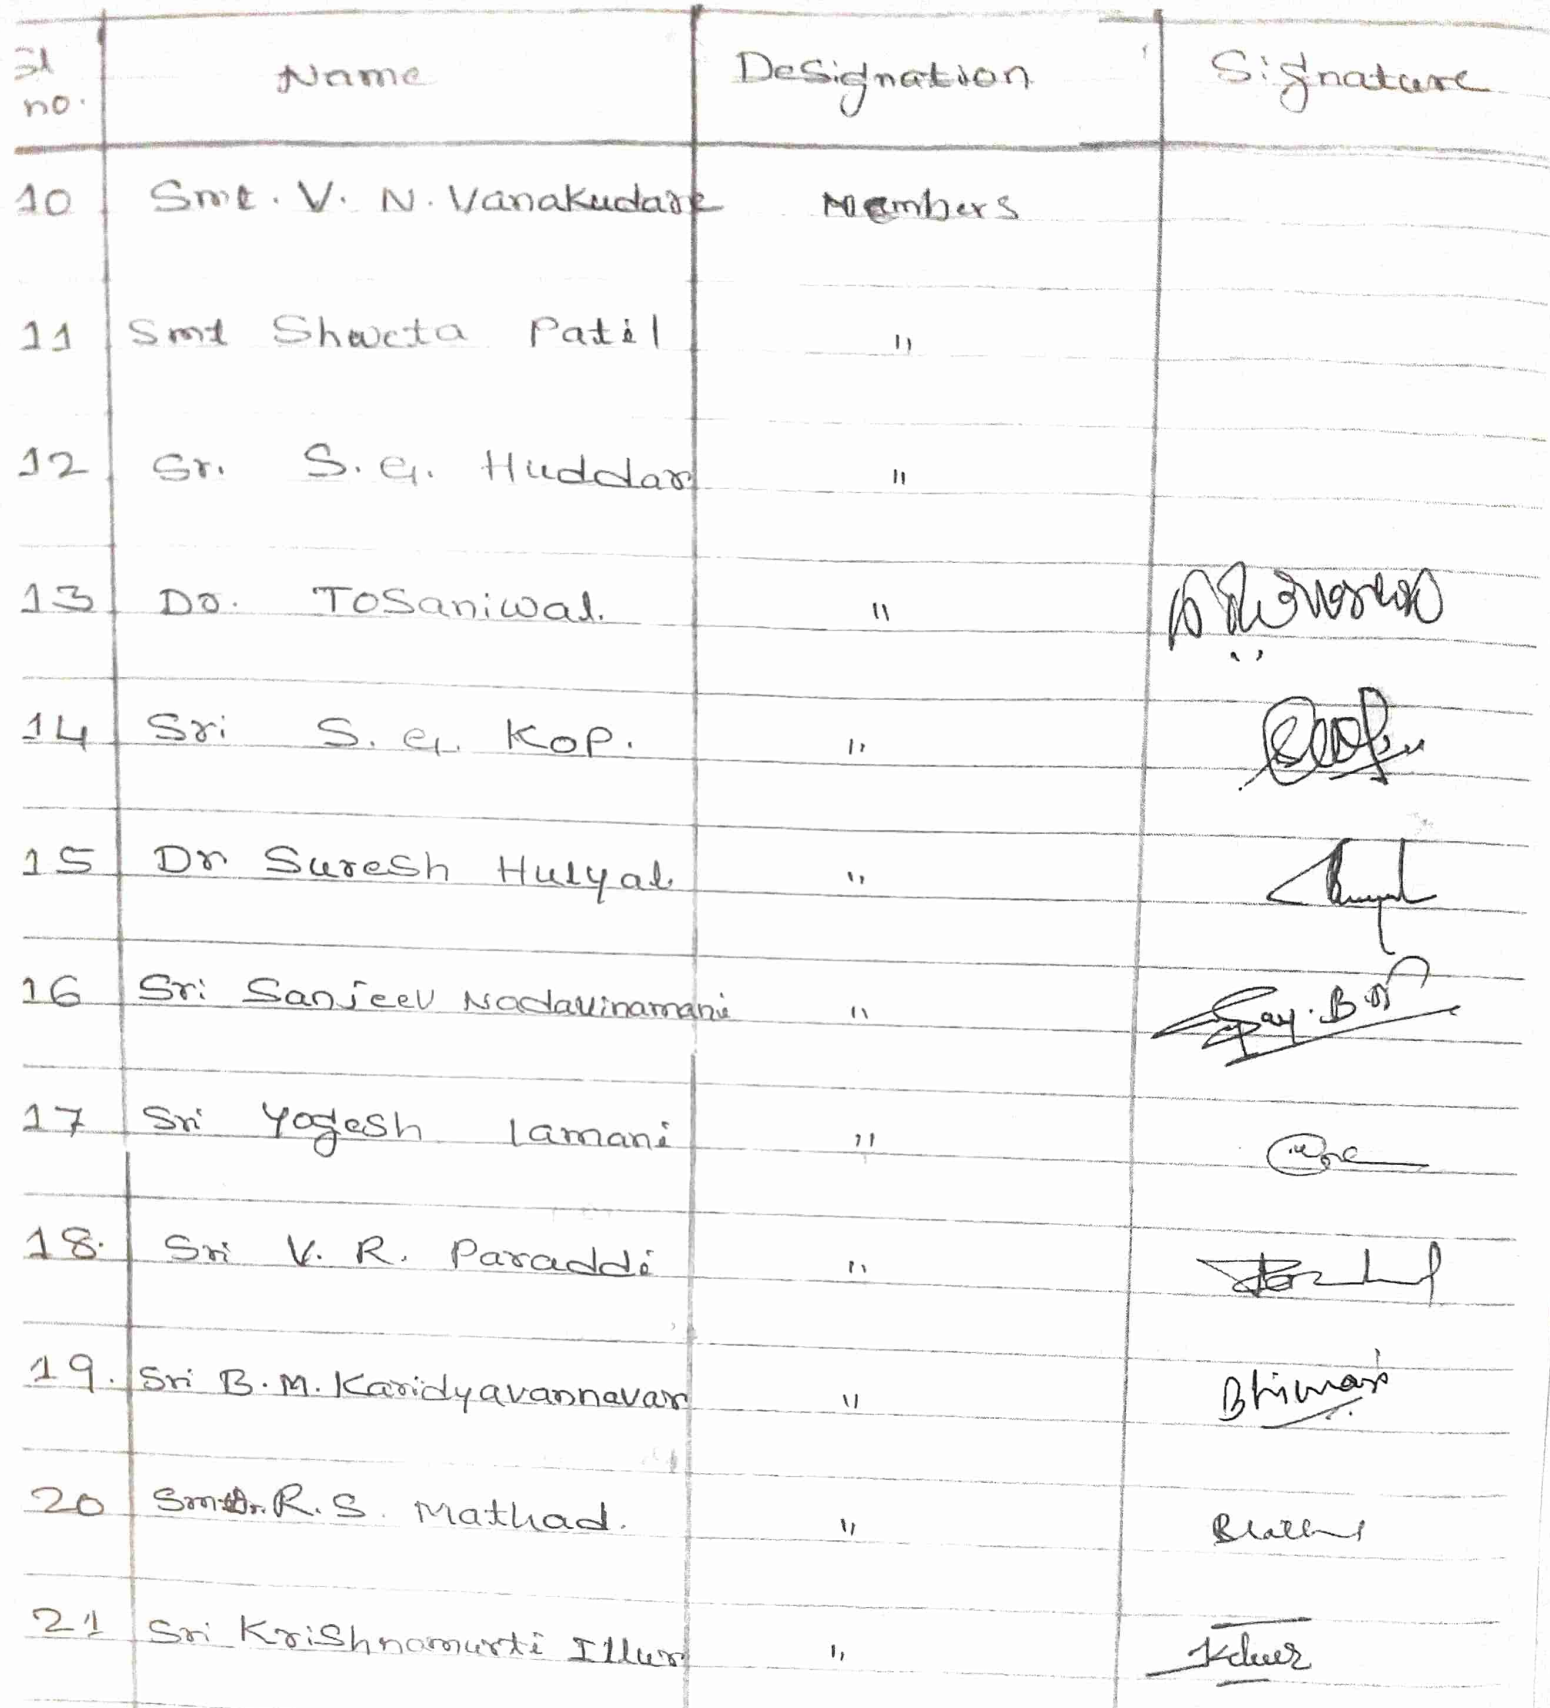 Sl no. Name Designation Signature
10 Smt. V. N. Vanakudare Members
11 Smt Shweta Patil "
12 Sr. S. G. Huddar "
13 Dr. Tosaniwal. "
14 Sri S. G. Kop. "
15 Dr Suresh Hulyal. "
16 Sri Sanjeev Nadavinamani "
17 Sri Yogesh Lamani "
18. Sri V. R. Paraddi "
19. Sri B. M. Karidyavannavar "
20 R. S. Mathad. "
21 Sri Krishnamurti Illur "